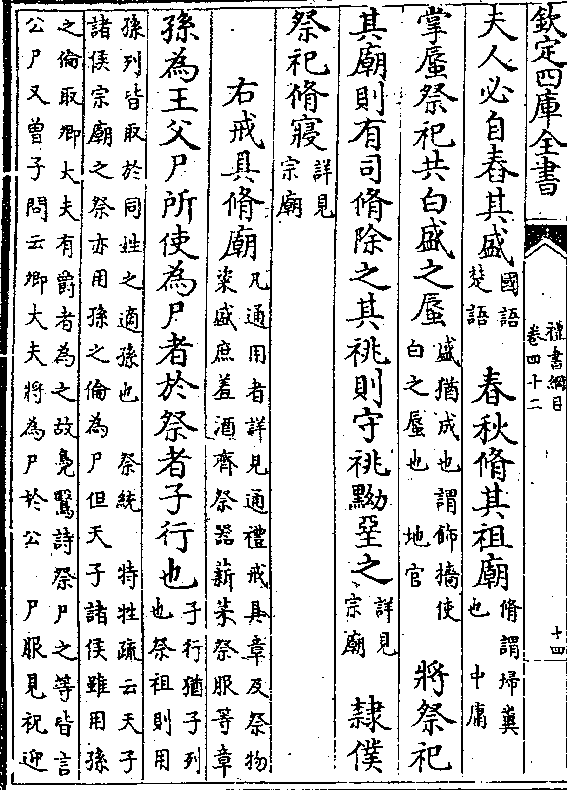 欽定四庫全書
禮書綱目
卷四十二
十四
夫人必自舂其盛國語楚語　春秋脩其祖廟脩謂埽糞也　中庸
掌蜃祭祀共白盛之蜃盛猶成也謂飾牆使白之蜃也　地官　將祭祀
其廟則有司脩除之其祧則守祧黝堊之詳見宗廟　隸僕
祭祀脩寢詳見宗廟
右戒具脩廟凡通用者詳見通禮戒具章及祭物粢盛庶羞酒齊祭器薪蒸祭服等章
孫為王父尸所使為尸者於祭者子行也子行猶子列也祭祖則用
孫列皆取於同姓之適孫也　祭統　特牲疏云天子
諸侯宗廟之祭亦用孫之倫為尸但天子諸侯雖用孫
之倫取卿大夫有爵者為之故鳧鷖詩祭尸之等皆言
公尸又曾子問云卿大夫將為尸於公　尸服見祝迎